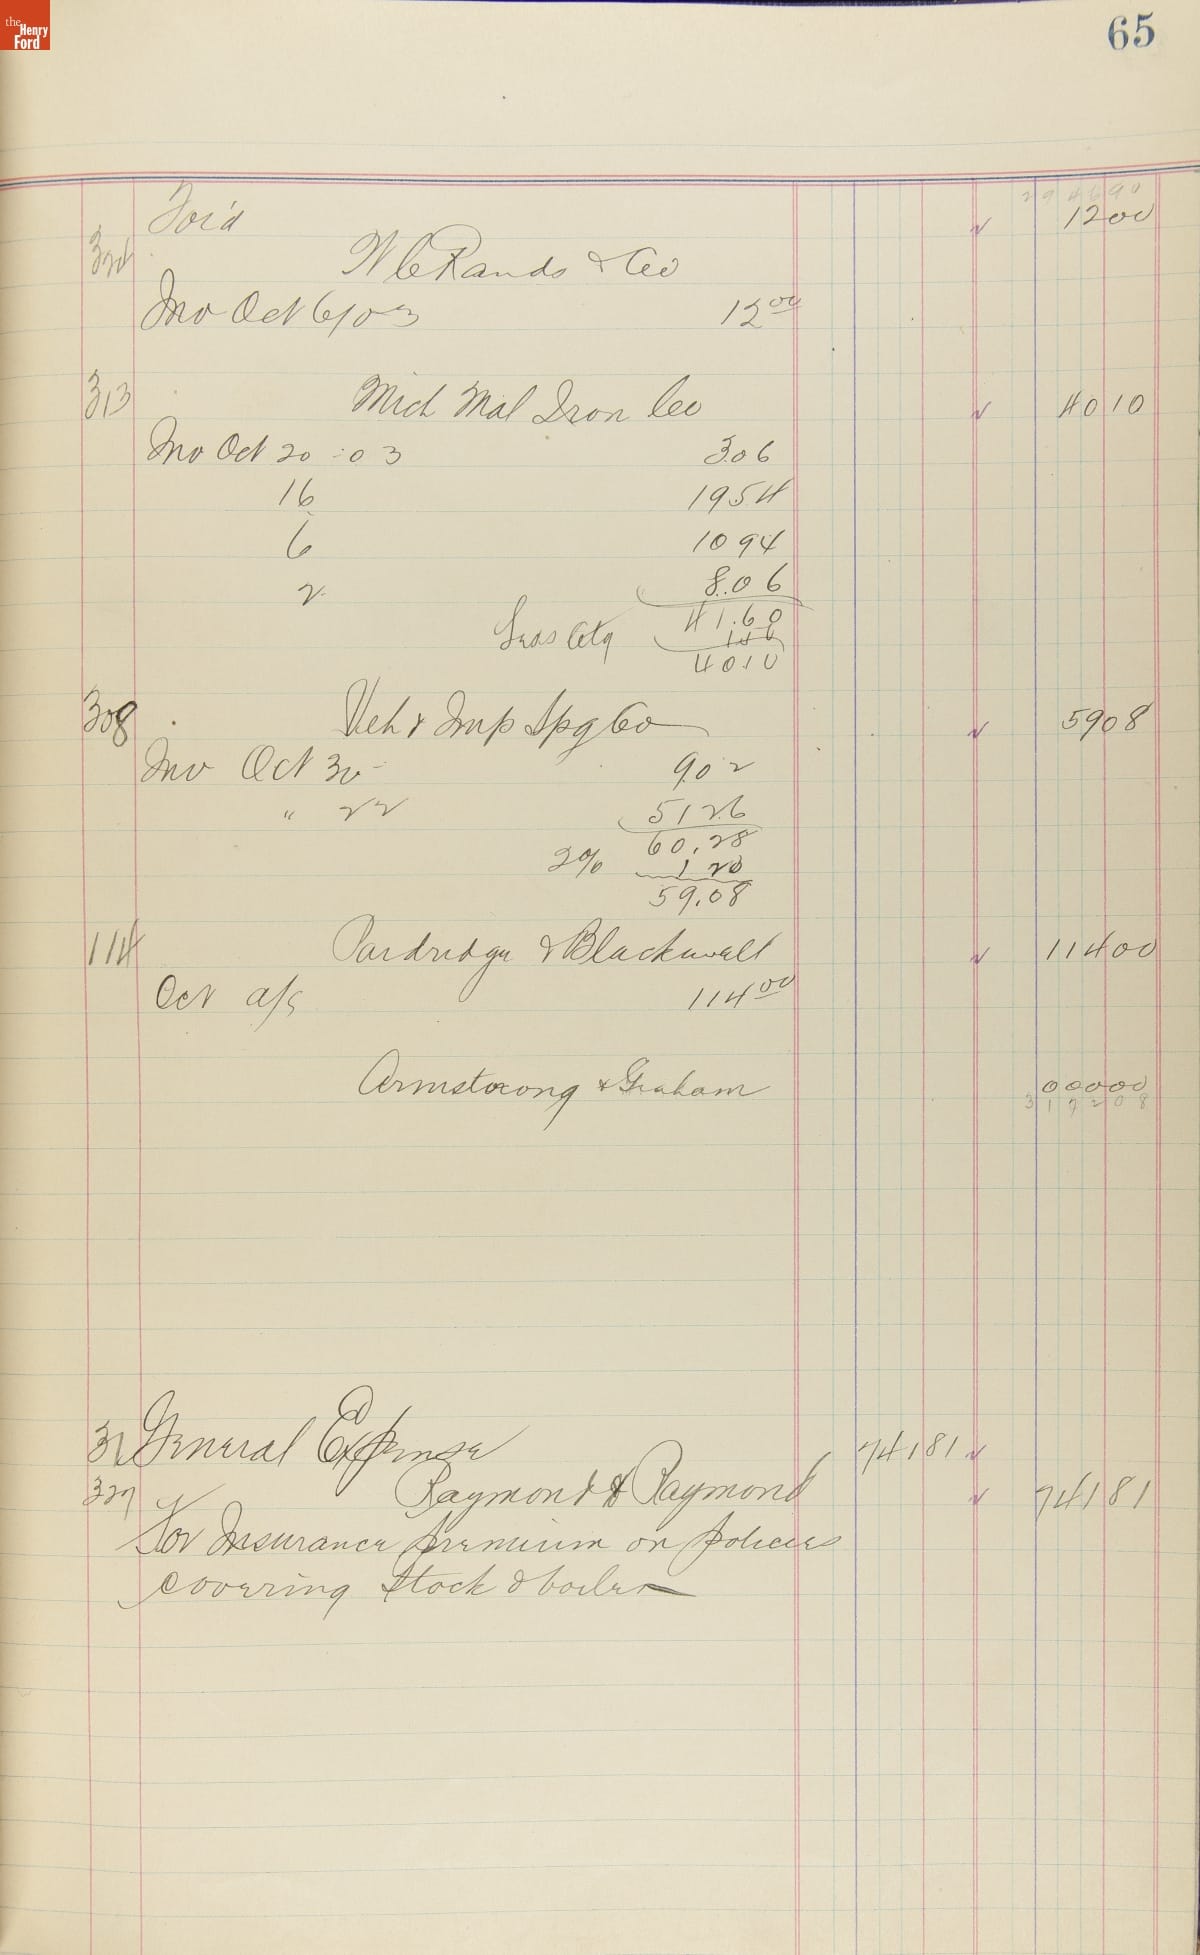 the Henry Ford
65
294690
For'd 1200
W C Rands & Co
Inv Oct 6/03 12 00
313 Mich Mal Iron Co 4010
Inv Oct 20 - 03 3.06
16 1954
6 1094
2 8.06
41.60
Less Ctg 1 50
40 10
308 Veh & Imp Spg Co 5908
Inv Oct 30 - 9.02
" 22 51 26
60.28
2% 1 20
59.08
114 Pardridge & Blackwell 11400
Oct a/c 114 00
Armstrong & Graham 00000
317208
31 General Expense 74181
327 Raymond & Raymond 74181
For Insurance premium on policies
covering Stock & boiler